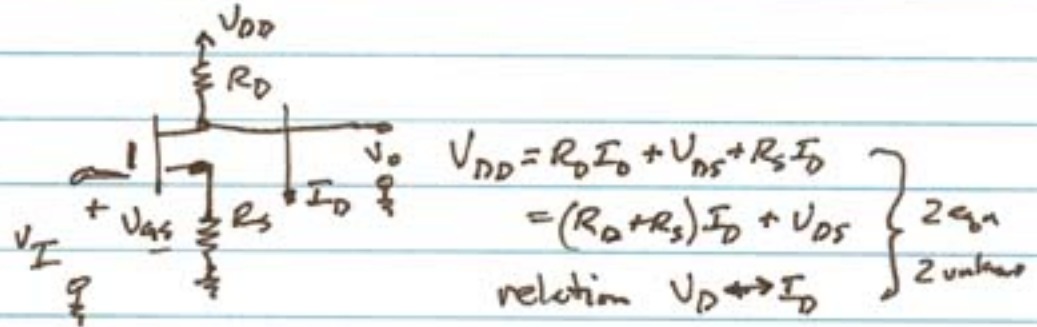 V_DD
R_D
V_o
I_D
+ V_GS
R_S
V_I
V_DD = R_D I_D + V_DS + R_S I_D
= (R_D + R_S) I_D + V_DS
relation V_D ↔ I_D
2 eqn
2 unknown